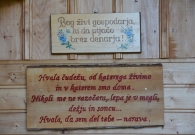 Bog živi gospodarja,
ki da pijačo
brez denarja!
Hvala čudežu, od katerega živimo
in v katerem smo doma.
Nikoli me ne razočara, lepa je v megli,
dežju in soncu...
Hvala, da sem del tebe - narava.